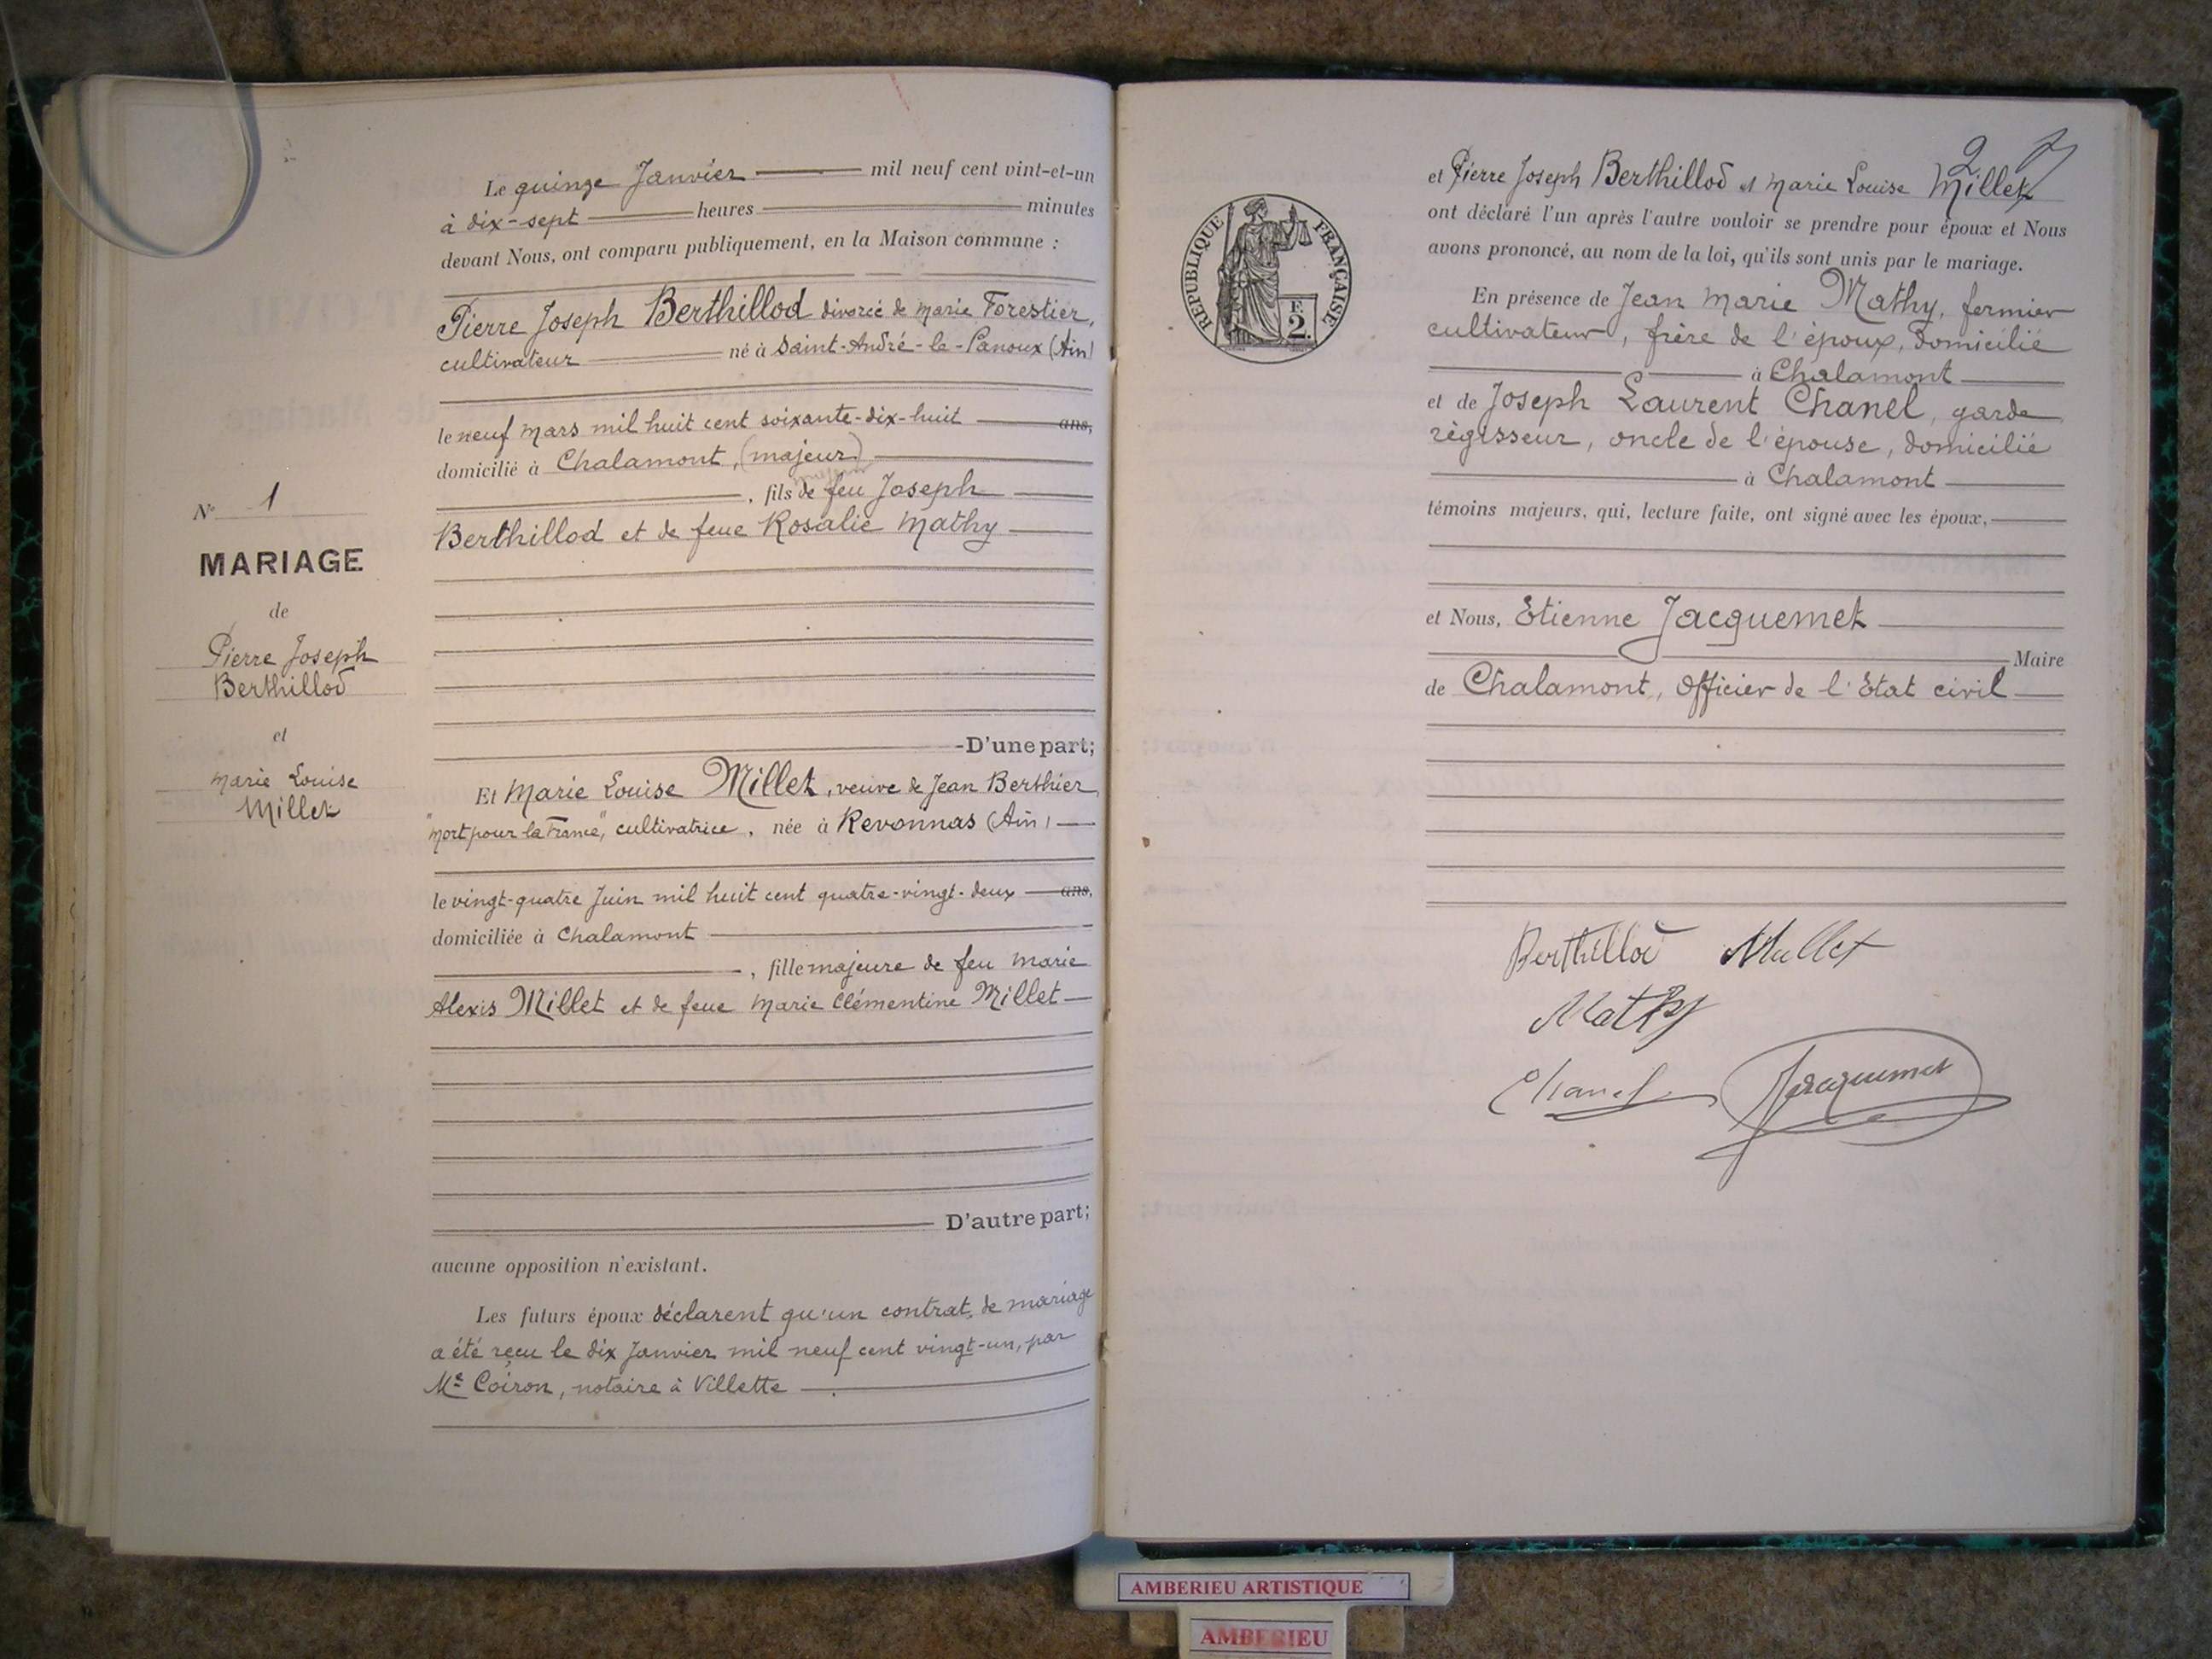 Le quinze Janvier mil neuf cent vint-et-un
à dix-sept heures minutes
devant Nous, ont comparu publiquement, en la Maison commune :
Pierre Joseph Berthillod divorcé de Marie Forestier,
cultivateur né à Saint-André-le-Panoux (Ain)
le neuf Mars mil huit cent soixante-dix-huit ans,
domicilié à Chalamont, (majeur)
, fils majeur de feu Joseph
Berthillod et de feue Rosalie Mathy
N° 1
MARIAGE
de
Pierre Joseph
Berthillod
et
Marie Louise
Millet
D'une part;
Et Marie Louise Millet, veuve de Jean Berthier,
"Mort pour la France", cultivatrice, née à Revonnas (Ain)
le vingt-quatre Juin mil huit cent quatre-vingt-deux ans,
domiciliée à Chalamont
, fille majeure de feu Marie
Alexis Millet et de feue Marie Clémentine Millet
D'autre part;
aucune opposition n'existant.
Les futurs époux déclarent qu'un contrat de mariage
a été reçu le dix Janvier mil neuf cent vingt-un, par
Me Coiron, notaire à Villette
2
et Pierre Joseph Berthillod et Marie Louise Millet
ont déclaré l'un après l'autre vouloir se prendre pour époux et Nous
avons prononcé, au nom de la loi, qu'ils sont unis par le mariage.
REPUBLIQUE FRANÇAISE
F.
2.
En présence de Jean Marie Mathy, fermier
cultivateur, frère de l'époux, domicilié
à Chalamont
et de Joseph Laurent Chanel, garde
règisseur, oncle de l'épouse, domicilié
à Chalamont
témoins majeurs, qui, lecture faite, ont signé avec les époux,
et Nous, Etienne Jacquemet
Maire
de Chalamont, Officier de l'Etat civil
Berthillod Millet
Mathy
Chanel Jacquemet
AMBERIEU ARTISTIQUE
AMBERIEU